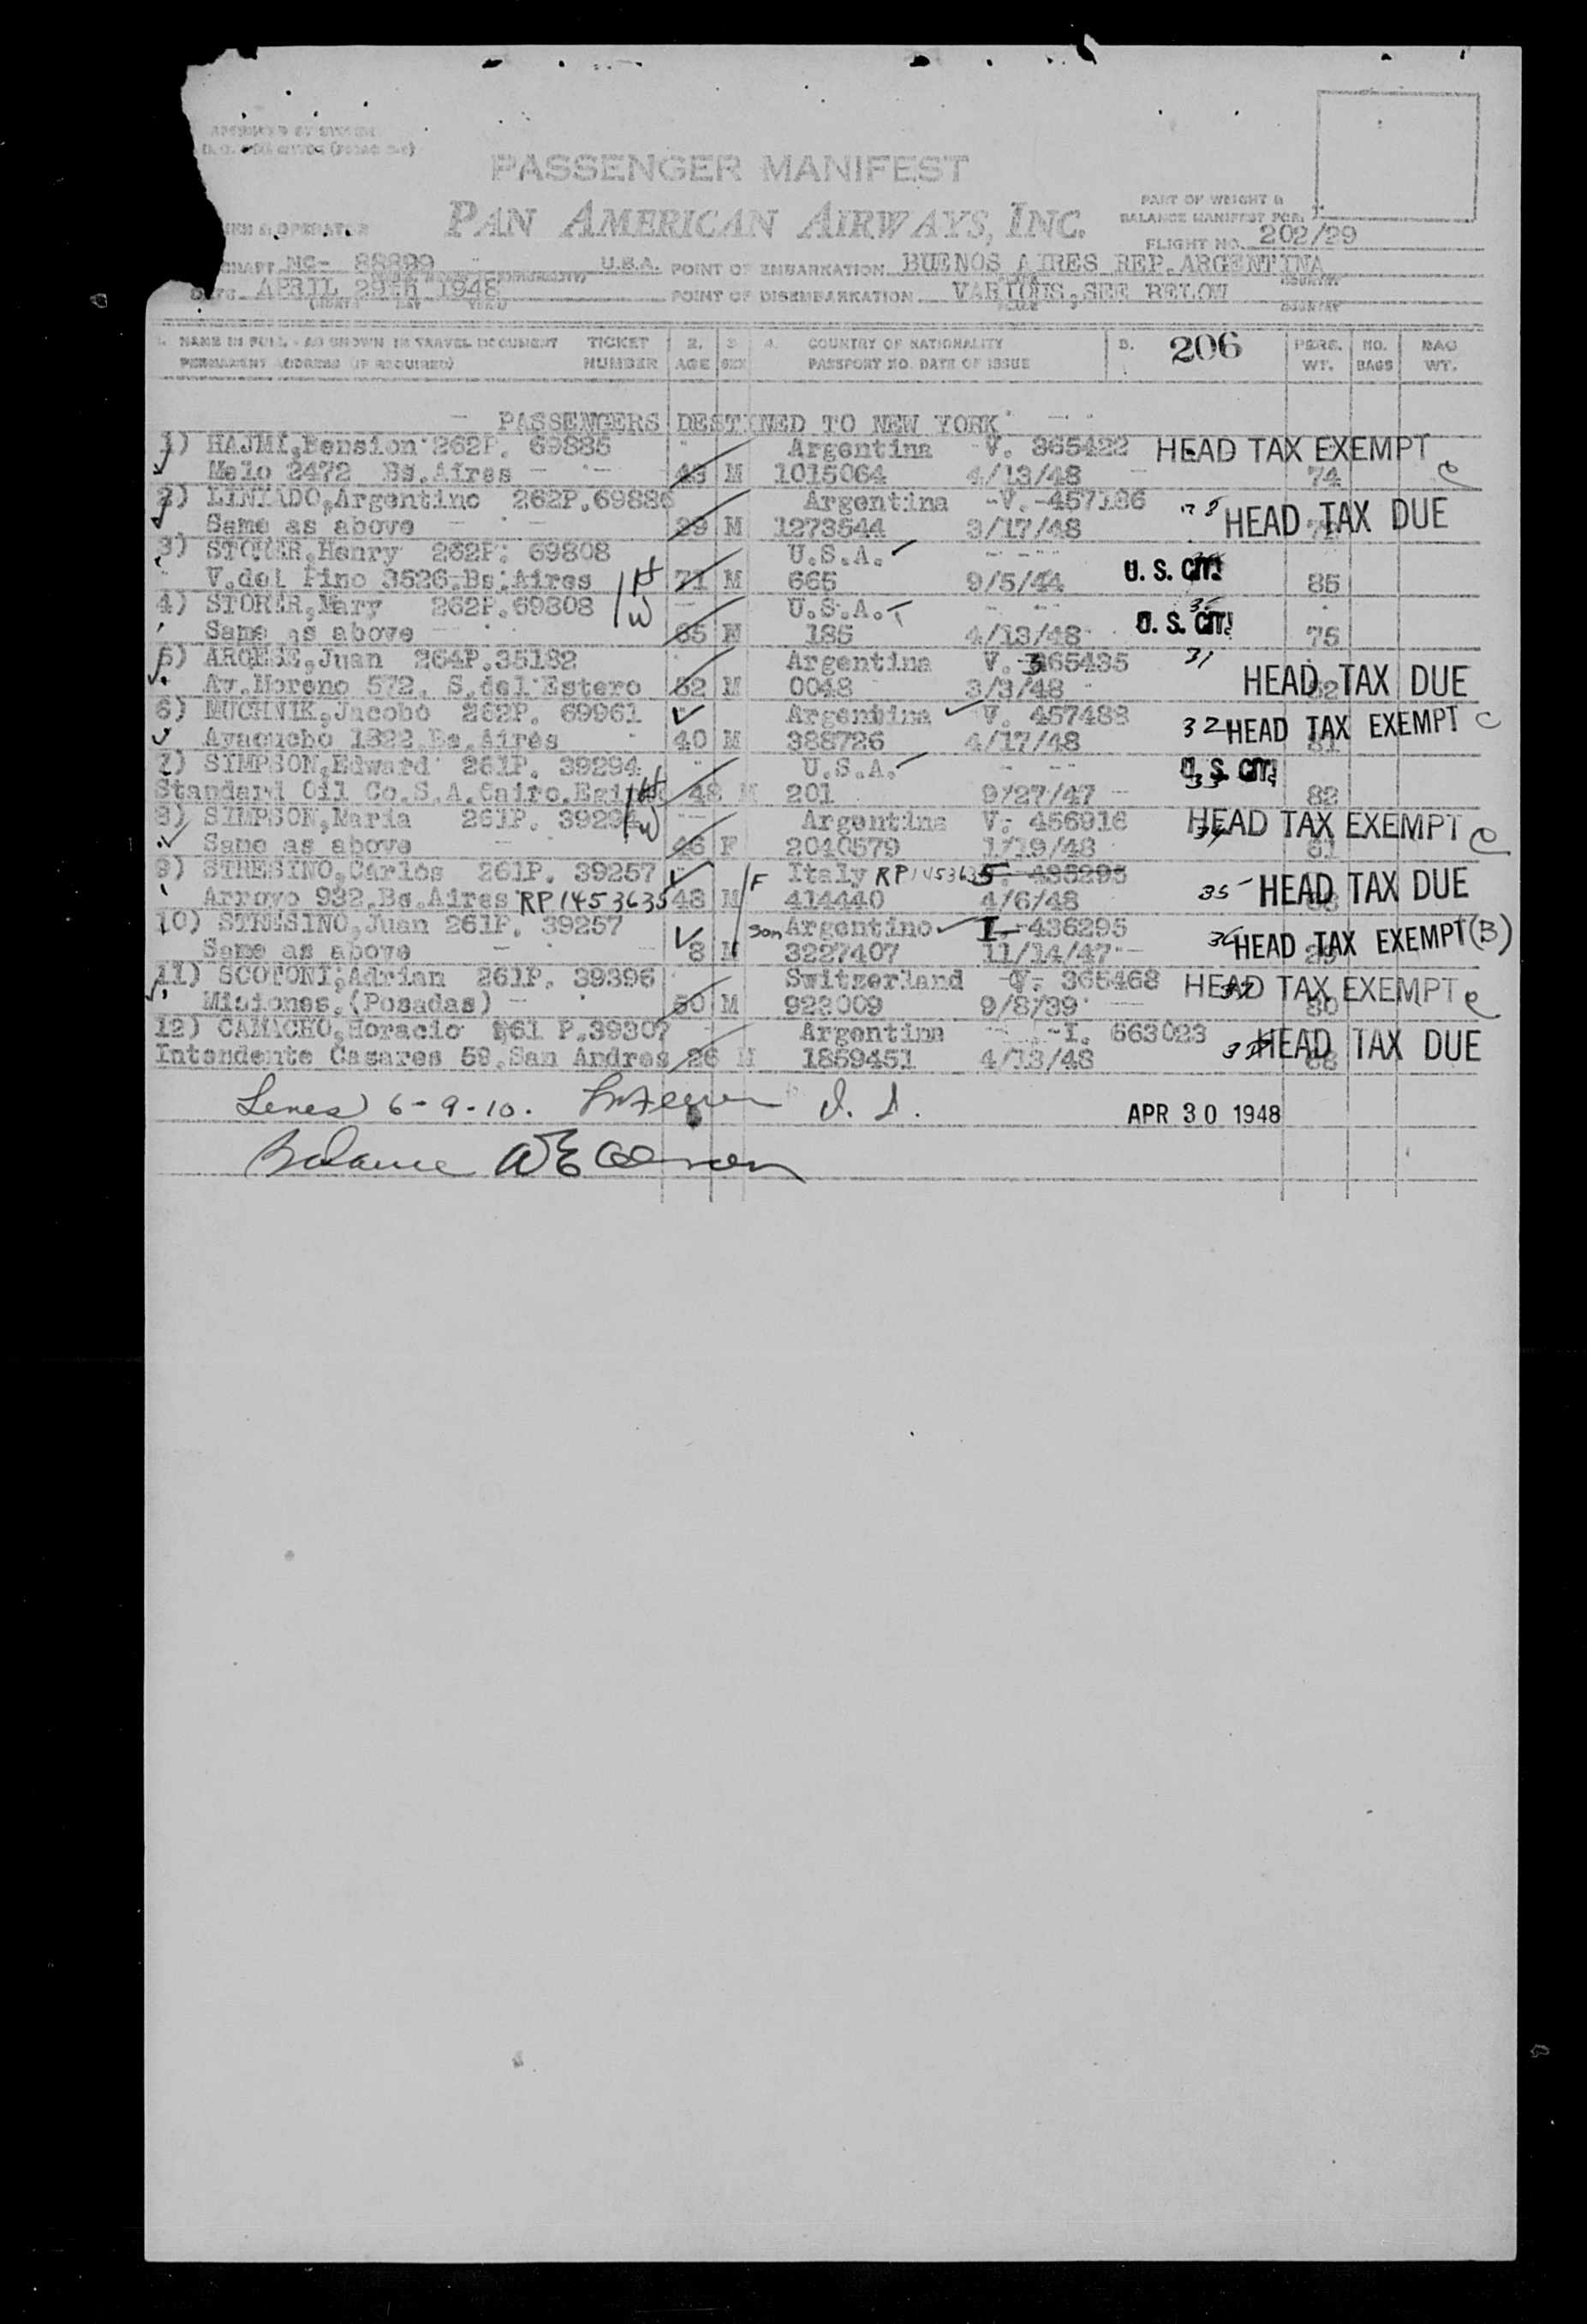 PASSENGER MANIFEST
PAN AMERICAN AIRWAYS, INC.
PART OF WEIGHT &
BALANCE MANIFEST FOR
& OPERATOR
FLIGHT NO. 202/29
NC- 88899 U.S.A. POINT OF EMBARKATION BUENOS AIRES REP. ARGENTINA
APRIL 29th 1948 POINT OF DISEMBARKATION VARIOUS, SEE BELOW
NAME IN FULL - AS SHOWN IN TRAVEL DOCUMENT TICKET 2. 3. 4. COUNTRY OF NATIONALITY 5. 206 PERS. NO. BAG
PERMANENT ADDRESS (IF REQUIRED) NUMBER AGE SEX PASSPORT NO. DATE OF ISSUE WT. BAGS WT.
PASSENGERS DESTINED TO NEW YORK
1) HAJMI, Pension 262P. 69885 Argentina V. 365422 HEAD TAX EXEMPT
Melo 2472 Bs.Aires M 1015064 4/13/48 74
2) LINIADO, Argentino 262P.69886 Argentina -V.-457186 HEAD TAX DUE
Same as above 29 M 1273544 3/17/48
3) Henry 262P. 69808 U.S.A.
V.del Pino 3526.Bs.Aires H 71 M 665 9/5/44 U. S. CIT. 85
4) Mary 262P.69808 W U.S.A.
Same as above 65 185 4/13/48 U. S. CIT. 75
5) Juan 264P.35182 Argentina V. 365435 31
Av.Moreno 572. S.del Estero 52 M 0048 3/3/48 HEAD TAX DUE
6) MUCHNIK, Jacobo 262P. 69961 Argentina V. 457488 32 HEAD TAX EXEMPT C
Ayacucho 1822.Bs.Aires 40 M 388726 4/17/48 81
7) SIMPSON, Edward 261P. 39294 U.S.A. U. S. CIT. 33
Standard Oil Co.S.A.Cairo. H 48 M 201 9/27/47 82
8) SIMPSON, Maria 261P. 39294 W Argentina V. 456916 HEAD TAX EXEMPT
Same as above 46 F 2040579 1/19/48 61
9) STRESINO, Carlos 261P. 39257 F Italy RP1453635 436295
Arroyo 932.Bs.Aires RP1453635 48 M 414440 4/6/48 35 HEAD TAX DUE
10) STRESINO, Juan 261P. 39257 son Argentino I-436295 36 HEAD TAX EXEMPT (B)
Same as above 8 M 3227407 11/14/47
11) SCOTONI, Adrian 261P. 39396 Switzerland V. 365468 HEAD TAX EXEMPT
Misiones.(Posadas) 50 M 922009 9/8/39 80
12) CAMACHO, Horacio 261 P.39307 Argentina I. 663023 HEAD TAX DUE
Intendente Casares 59.San Andres 26 M 1859451 4/13/48 68
Lines 6-9-10. APR 30 1948
Balance